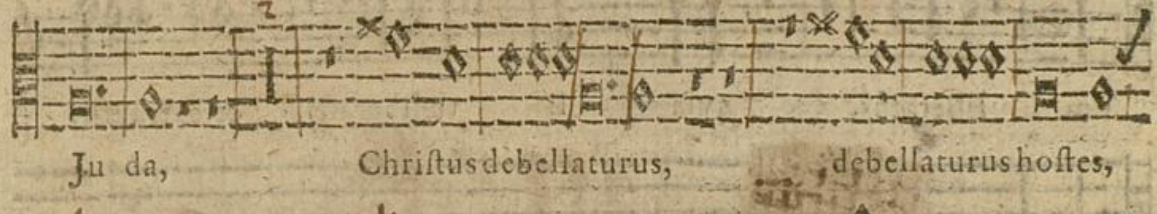 2
Ju da, Chriſtus debellaturus, debellaturus hoſtes,